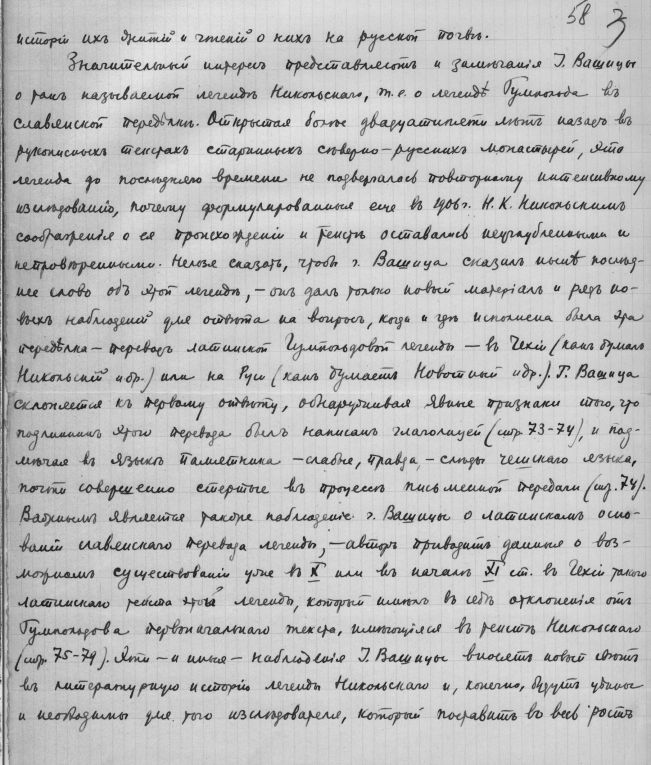 58 3
исторіи ихъ житій и чтеній о нихъ на русской почвѣ.
Значительный интересъ представляютъ и замѣчанія І. Вашицы
о такъ называемой легендѣ Никольскаго, т.е. о легендѣ Гумпольда въ
славянской передѣлкѣ. Открытая болѣе двадцатипяти лѣтъ назадъ въ
рукописныхъ текстахъ старинныхъ сѣверно-русскихъ монастырей, эта
легенда до послѣдняго времени не подвергалась повторному интенсивному
изслѣдованію, почему формулированныя еще въ 1906 г. Н.К. Никольскимъ
соображенія о ея происхожденіи и текстѣ оставались неуглубленными и
непровѣренными. Нельзя сказать, чтобы г. Вашица сказалъ нынѣ послѣд-
нее слово объ этой легендѣ, – онъ далъ только новый матеріалъ и рядъ но-
выхъ наблюденій для отвѣта на вопросъ, когда и гдѣ исполнена была эта
передѣлка – переводъ латинской Гумпольдовой легенды – въ Чехіи (какъ думалъ
Никольскій и др.) или на Руси (какъ думаетъ Новотный и др.). Г. Вашица
склоняется къ первому отвѣту, обнаруживая явные признаки того, что
подлинникъ этого перевода былъ написанъ глаголицей (стр. 73-74), и под-
мѣчая въ языкѣ памятника – слабые, правда, – слѣды чешскаго языка,
почти совершенно стертые въ процессѣ письменной передачи (стр. 74).
Важнымъ является также наблюденіе г. Вашицы о латинскомъ осно-
ваніи славянскаго перевода легенды, – авторъ приводитъ данныя о воз-
можномъ существованіи уже въ X или въ началѣ XI ст. въ Чехіи такого
латинскаго текста этой легенды, который имѣлъ въ себѣ отклоненія отъ
Гумпольдова первоначальнаго текста, имѣющіяся въ текстѣ Никольскаго
(стр. 75-79). Эти – и иныя – наблюденія І. Вашицы вносятъ новый свѣтъ
въ литературную исторію легенды Никольскаго и, конечно, будутъ цѣнны
и необходимы для того изслѣдователя, который поставитъ во весь ростъ